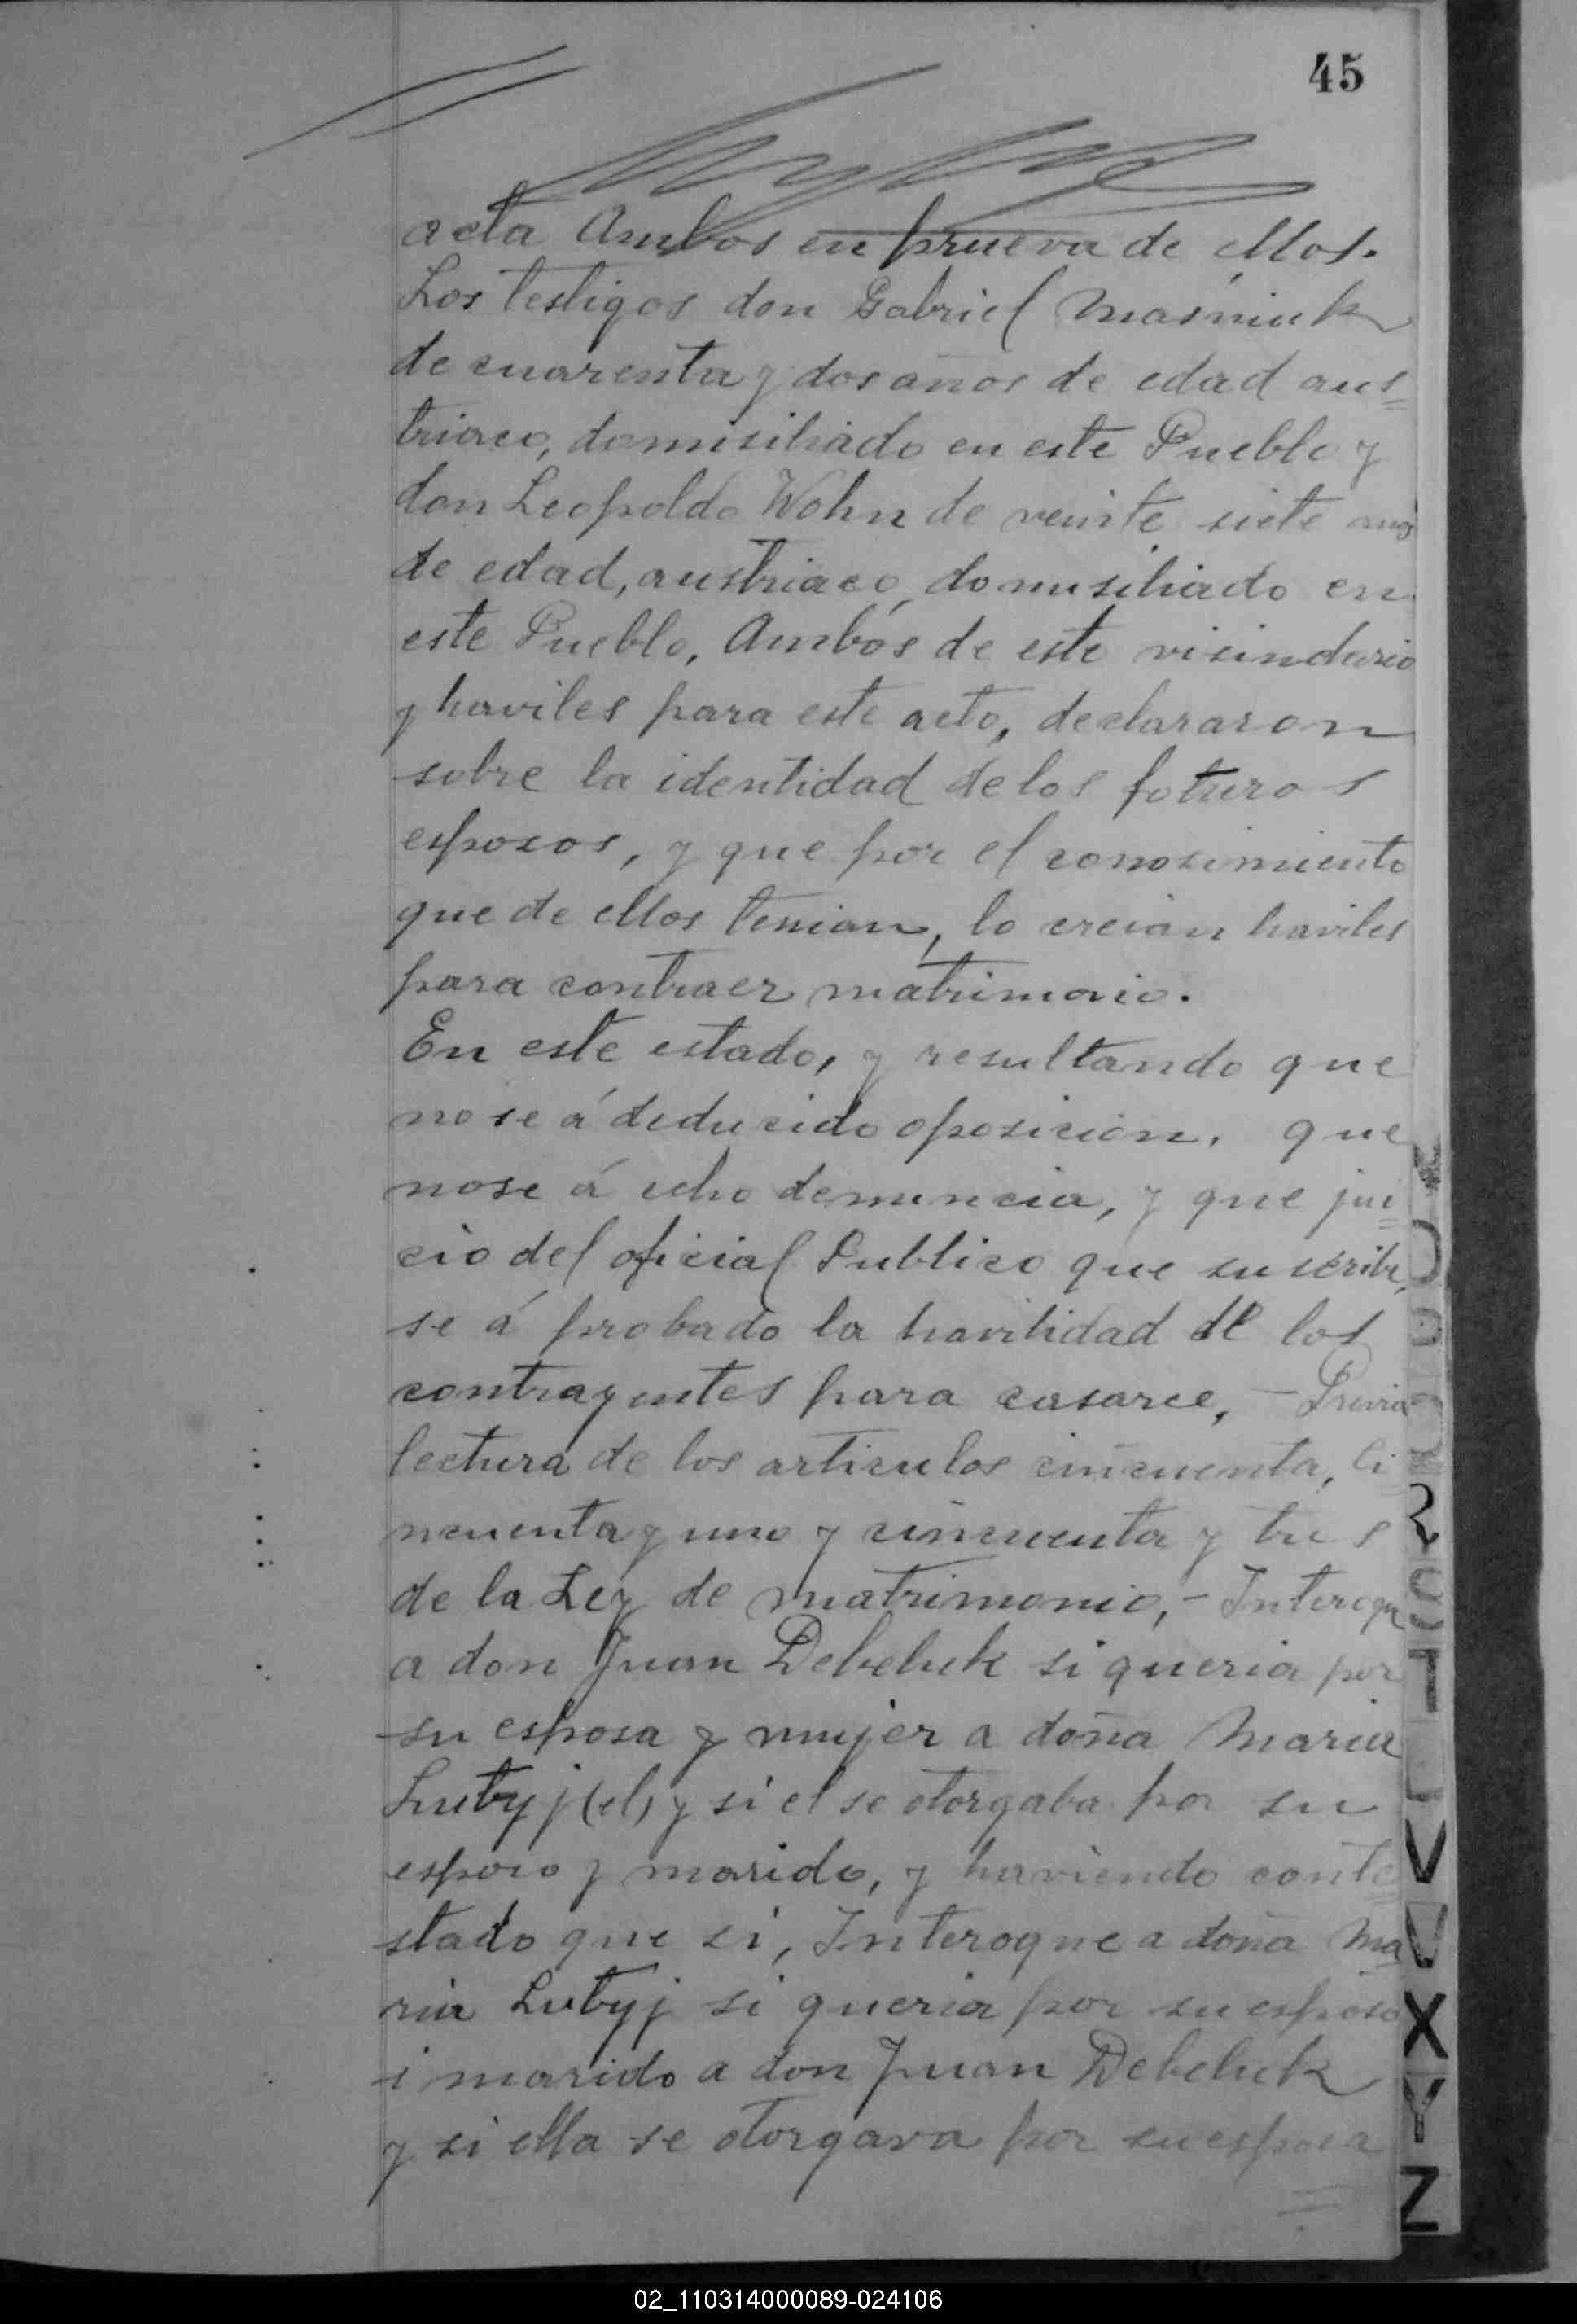 45
acta Ambos en prueva de ellos.
Los testigos don Gabriel Masniuk
de cuarenta y dos años de edad aus=
triaco, domisiliado en este Pueblo y
don Leopoldo Wohn de veinte siete años
de edad, austriaco, domisiliado en
este Pueblo, Ambos de este visindario
y haviles para este acto, declararon
sobre la identidad de los foturos
esposos, y que por el conosimiento
que de ellos tenian, lo creian haviles
para contraer matrimonio.
En este estado, y resultando que
no se á deducido oposicion, que
no se á echo denuncia, y que jui=
cio del oficial Publico que suscribe,
se á probado la havilidad de los
contrayentes para casarce, - Previa
lectura de los articulos cincuenta, Ci=
ncuenta y uno y cincuenta y tres
de la Ley de matrimonio, - Interogue
a don Juan Debeluk si queria por
su esposa y mujer a doña Maria
Lutyj (el) y si el se otorgaba por su
esposo y marido, y haviendo conte=
stado que si, Interogue a doña Ma=
ria Lutyj si queria por su esposo
i marido a don Juan Debeluk
y si ella se otorgava por su esposa
R
S
T
L
V
V
X
Y
Z
02_110314000089-024106